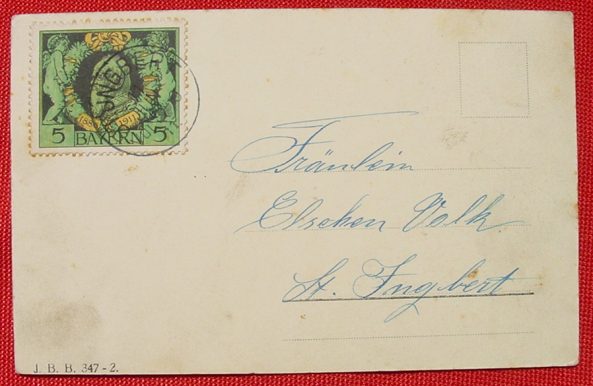 5 BAYERN 5
Fräulein
Elschen Volk
St. Ingbert
J. B. B. 347-2.